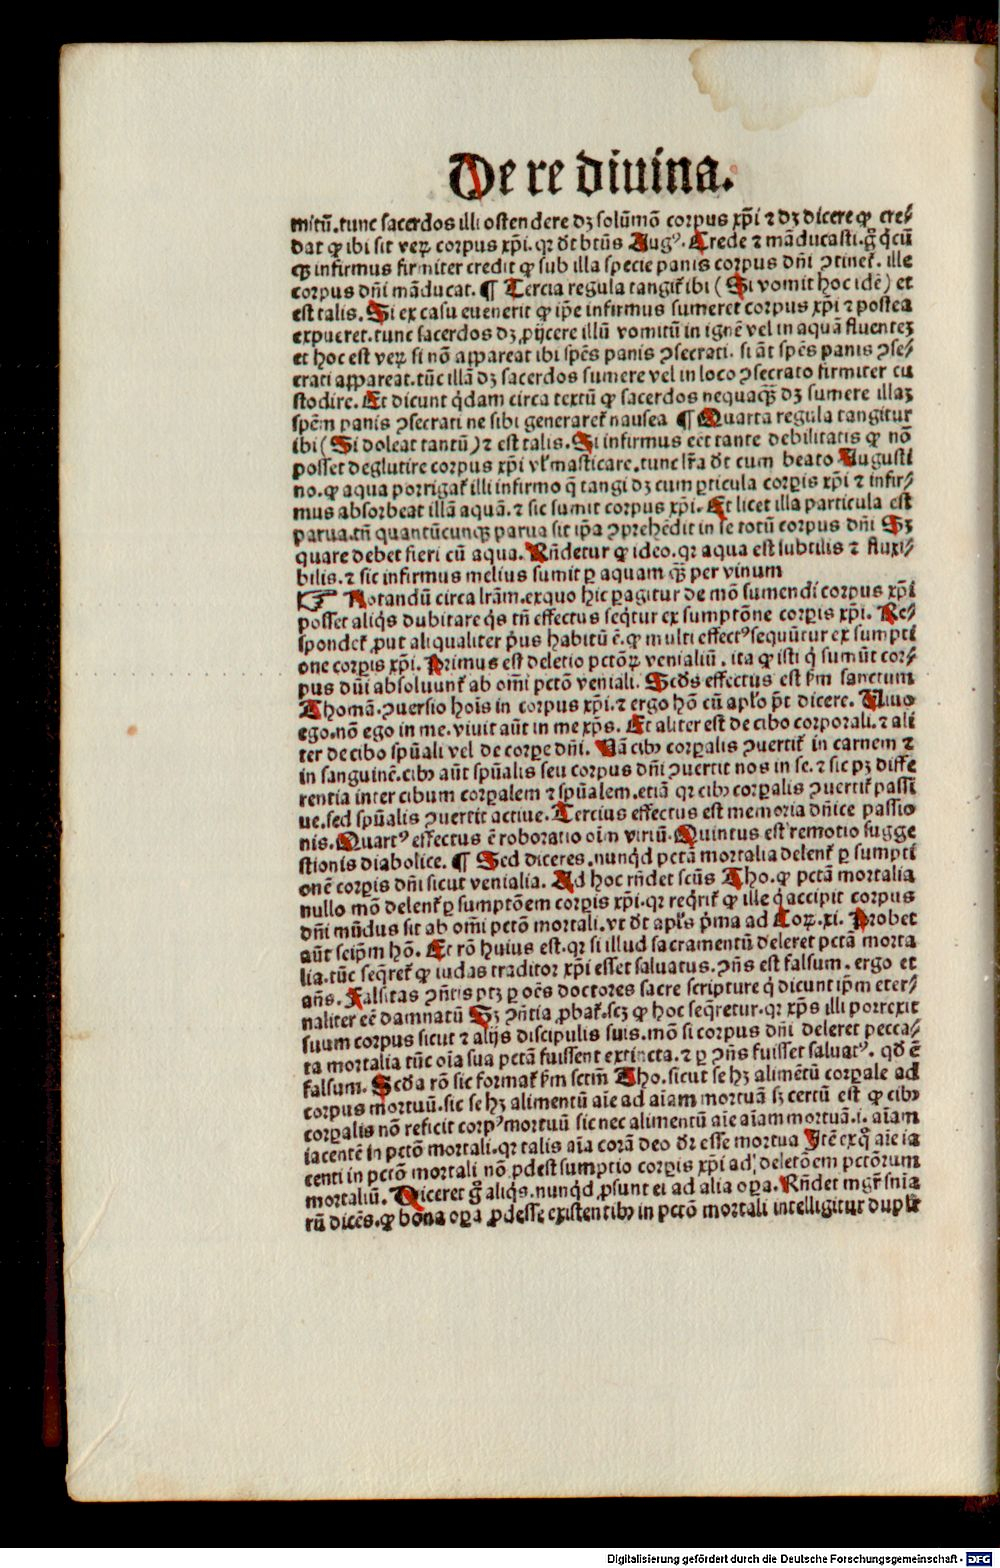 De re diuina.
mitū.tunc sacerdos illi ostendere dꝫ solūmō corpus xp̄i ⁊ dꝫ dicere ꝙ cre⸗
dat ꝙ ibi sit veꝝ corpus xp̄i. qꝛ dt̄ btūs Augꝰ. Crede ⁊ māducasti.gͦ qͥcū
qꝫ infirmus firmiter credit ꝙ sub illa specie panis corpus dn̄i ꝯtinet̄. ille
corpus dn̄i māducat. ¶ Tercia regula tangit̄ ibi ( Si vomit hoc idē) et
est talis. Si ex casu euenerit ꝙ ip̄e infirmus sumeret corpus xp̄i ⁊ postea
expueret.tunc sacerdos dꝫ ꝓijcere illū vomitū in ignē vel in aquā fluenteꝫ
et hoc est veꝝ si nō appareat ibi spēs panis ꝯsecrati. si āt spēs panis ꝯse⸗
crati appareat.tūc illā dꝫ sacerdos sumere vel in loco ꝯsecrato firmiter cu
stodire. Et dicunt qͥdam circa textū ꝙ sacerdos nequaqꝫ̄ dꝫ sumere illaꝫ
spēm panis ꝯsecrati ne sibi generaret̄ nausea ¶ Quarta regula tangitur
ibi ( Si doleat tantū) ⁊ est talis. Si infirmus eēt tante debilitatis ꝙ nō
posset deglutire corpus xp̄i vl̄ masticare.tunc lr̄a dt̄ cum beato Augusti
no.ꝙ aqua porrigat̄ illi infirmo q̄ tangi dꝫ cum ꝑticula corꝑis xp̄i ⁊ infir⸗
mus absorbeat illā aquā.⁊ sic sumit corpus xp̄i. Et licet illa particula est
parua.tn̄ quantūcunqꝫ parua sit ip̄a ꝯprehēdit in se totū corpus dn̄i Sꝫ
quare debet fieri cū aqua. Rn̄detur ꝙ ideo.qꝛ aqua est subtilis ⁊ fluxi⸗
bilis.⁊ sic infirmus melius sumit ꝑ aquam qꝫ̄ per vinum
☞ Notandū circa lr̄am.exquo hic ꝑagitur de mō sumendi corpus xp̄i
posset aliqͥs dubitare qͥs tn̄ effectus seqͥtur ex sumptōne corꝑis xp̄i. Re⸗
spondet̄ ꝓut aliqualiter pͥus habitū ē.ꝙ multi effectꝰ sequūtur ex sumpti
one corꝑis xp̄i. Primus est deletio pctōꝝ venialiū. ita ꝙ isti qͥ sumūt cor⸗
pus dn̄i absoluunt̄ ab om̄i pctō veniali. Scd̄s effectus est fm̄ sanctum
Thomā.ꝯuersio hoīs in corpus xp̄i.⁊ ergo hō cū apl̄o pt̄ dicere. Viuo
ego.nō ego in me.viuit aūt in me xp̄s. Et aliter est de cibo corporali.⁊ ali
ter de cibo spūali vel de corꝑe dn̄i. Nā cibꝰ corꝑalis ꝯuertit̄ in carnem ⁊
in sanguinē.cibꝰ aūt spūalis seu corpus dn̄i ꝯuertit nos in se.⁊ sic pꝫ diffe
rentia inter cibum corꝑalem ⁊ spūalem.etiā qꝛ cibꝰ corꝑalis ꝯuertit̄ passi
ue.sed spūalis ꝯuertit actiue. Tercius effectus est memoria dn̄ice passio
nis. Quartꝰ effectus ē roboratio oīm viriū. Quintus est remotio sugge
stionis diabolice. ¶ Sed diceres.nunqͥd pctā mortalia delent̄ ꝑ sumpti
onē corꝑis dn̄i sicut venialia. Ad hoc rn̄det scūs Tho.ꝙ pctā mortalia
nullo mō delent̄ ꝑ sumptōem corꝑis xp̄i.qꝛ reqͥrit̄ ꝙ ille qͥ accipit corpus
dn̄i mūdus sit ab om̄i pctō mortali.vt dt̄ apl̄s pͥma ad Coꝝ.xi. Probet
aūt seip̄m hō. Et rō huius est.qꝛ si illud sacramentū deleret pctā morta
lia.tūc seq̄ret̄ ꝙ iudas traditor xp̄i esset saluatus.ꝯn̄s est falsum. ergo et
an̄s. Falsitas ꝯn̄tis ptꝫ ꝑ oēs doctores sacre scripture qͥ dicunt ip̄m eter⸗
naliter eē damnatū Sꝫ ꝯn̄tia ꝓbat̄.scꝫ ꝙ hoc seq̄retur.qꝛ xp̄s illi porrexit
suum corpus sicut ⁊ alijs discipulis suis.mō si corpus dn̄i deleret pecca⸗
ta mortalia tūc oīa sua pctā fuissent extincta.⁊ ꝑ ꝯn̄s fuisset saluatꝰ. qd̄ ē
falsum. Scd̄a rō sic format̄ fm̄ sctm̄ Tho.sicut se hꝫ alimētū corꝑale ad
corpus mortuū.sic se hꝫ alimentū aīe ad aīam mortuā sꝫ certū est ꝙ cibꝰ
corꝑalis nō reficit corpꝰ mortuū sic nec alimentū aīe aīam mortuā.i. aīam
iacentē in pctō mortali.qꝛ talis aīa corā deo dr̄ esse mortua Itē exqͦ aīe ia
centi in pctō mortali nō ꝓdest sumptio corꝑis xp̄i ad deletōem pctōrum
mortaliū. Diceret gͦ aliqͥs.nunqͥd ꝓsunt ei ad alia oꝑa. Rn̄det mgr̄ snīa
rū dicēs.ꝙ bona oꝑa ꝓdesse existentibꝰ in pctō mortali intelligitur duplr̄
Digitalisierung gefördert durch die Deutsche Forschungsgemeinschaft - DFG